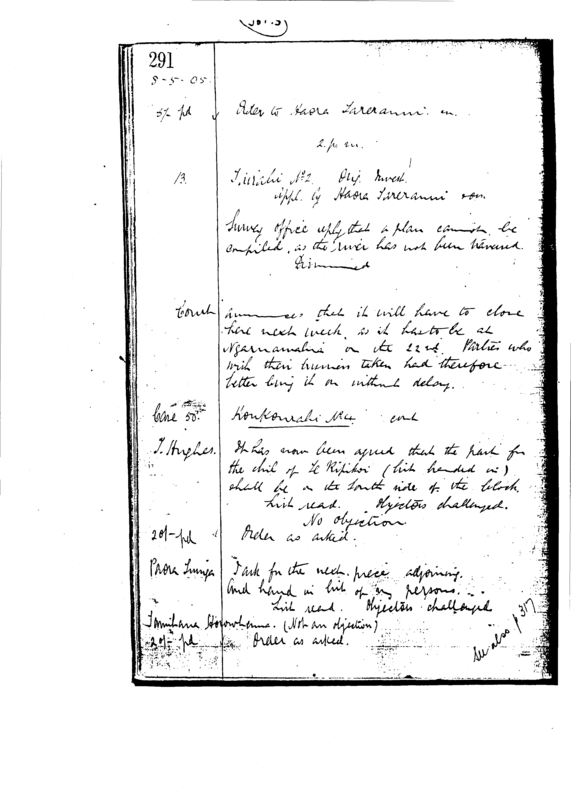 291
8-5-05.
5/- pd Order to Haora Tareranui
2. p.m.
13. No 2. Orig. Invest.
Appl. by Haora Tareranui
Survey office reply that a plan cannot be
compiled, as the river has not been traversed.
Dismissed
Court announces that it will have to close
here next week, as it has to be at
on the 22nd. Parties who
wish their business taken had therefore
better bring it on without delay.
Case 50. cont
T. Hughes. It has now been agreed that the part for
the child of Te (list handed in)
shall be on the South side of the block.
List read. Objectors challenged.
No objection
20/- pd Order as asked.
Paora I ask for the next piece adjoining.
And hand in list of persons.
List read. Objectors challenged
(Not an objection)
20/- pd Order as asked.
See also p 317